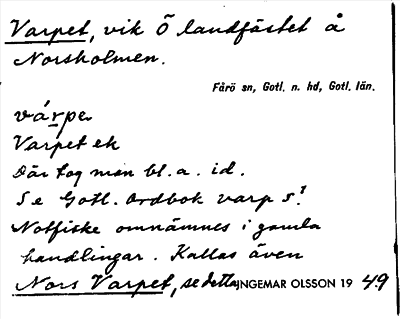 Varpet, vik Ö landfästet å
Norsholmen.
Fårö sn, Gotl. n. hd, Gotl. län.
várpe
Varpet ek
Där tog man bl. a. id.
Se Gotl. Ordbok varp s.¹
Notfiske omnämnes i gamla
handlingar. Kallas även
Nors Varpet, se detta INGEMAR OLSSON 1949